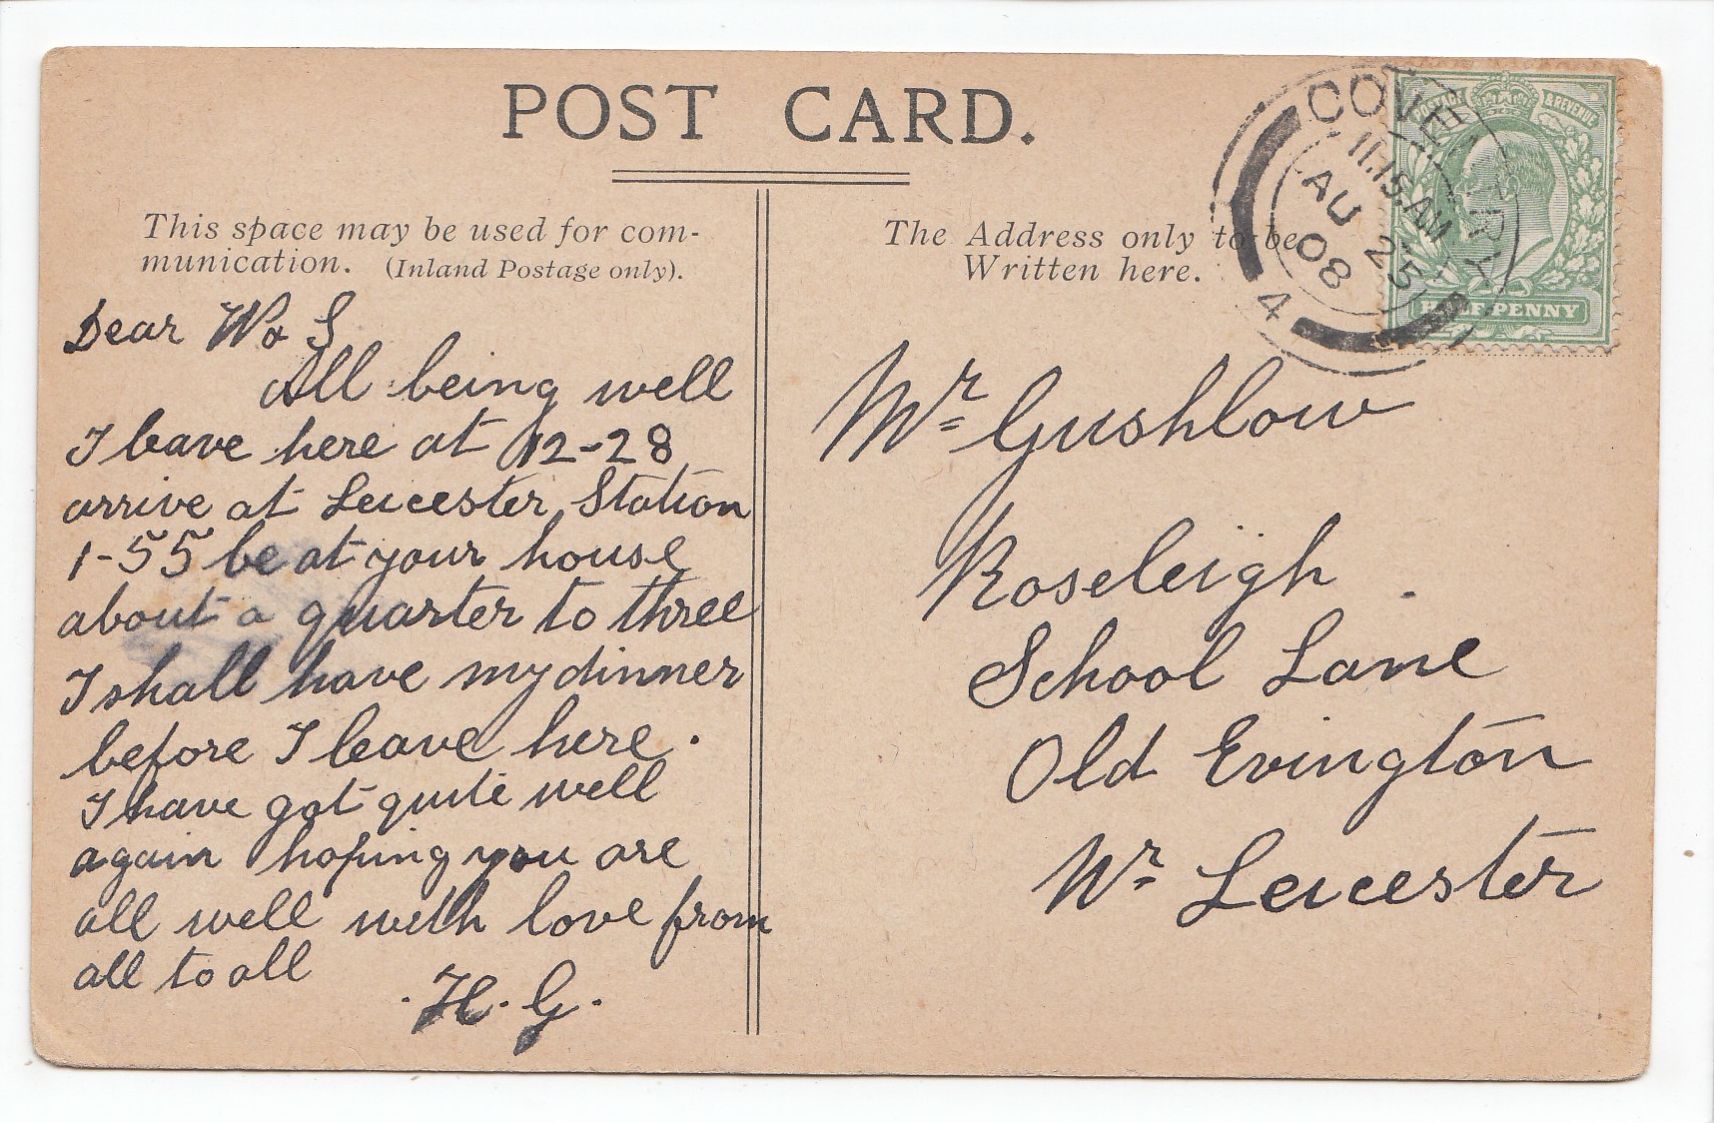 POST CARD.
This space may be used for com-
munication. (Inland Postage only).
The Address only to be
Written here.
COVENTRY
11.15 AM
AU 25
08
4
POSTAGE & REVENUE
HALFPENNY
Dear W & S
All being well
I leave here at 12-28
arrive at Leicester Station
1-55 be at your house
about a quarter to three
I shall have my dinner
before I leave here.
I have got quite well
again hoping you are
all well with love from
all to all
. H. G.
Mr Gushlow
Roseleigh.
School Lane
Old Evington
Nr Leicester